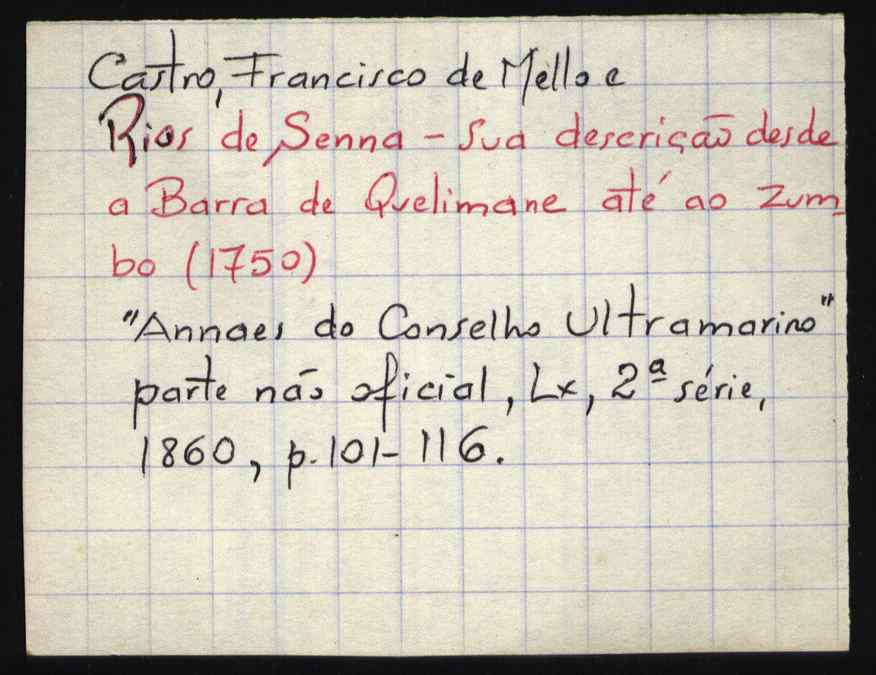 Castro, Francisco de Mello e
Rios de Senna - Sua descrição desde
a Barra de Quelimane até ao Zum-
bo (1750)
"Annaes do Conselho Ultramarino"
parte não oficial, Lx, 2ª série,
1860, p. 101-116.